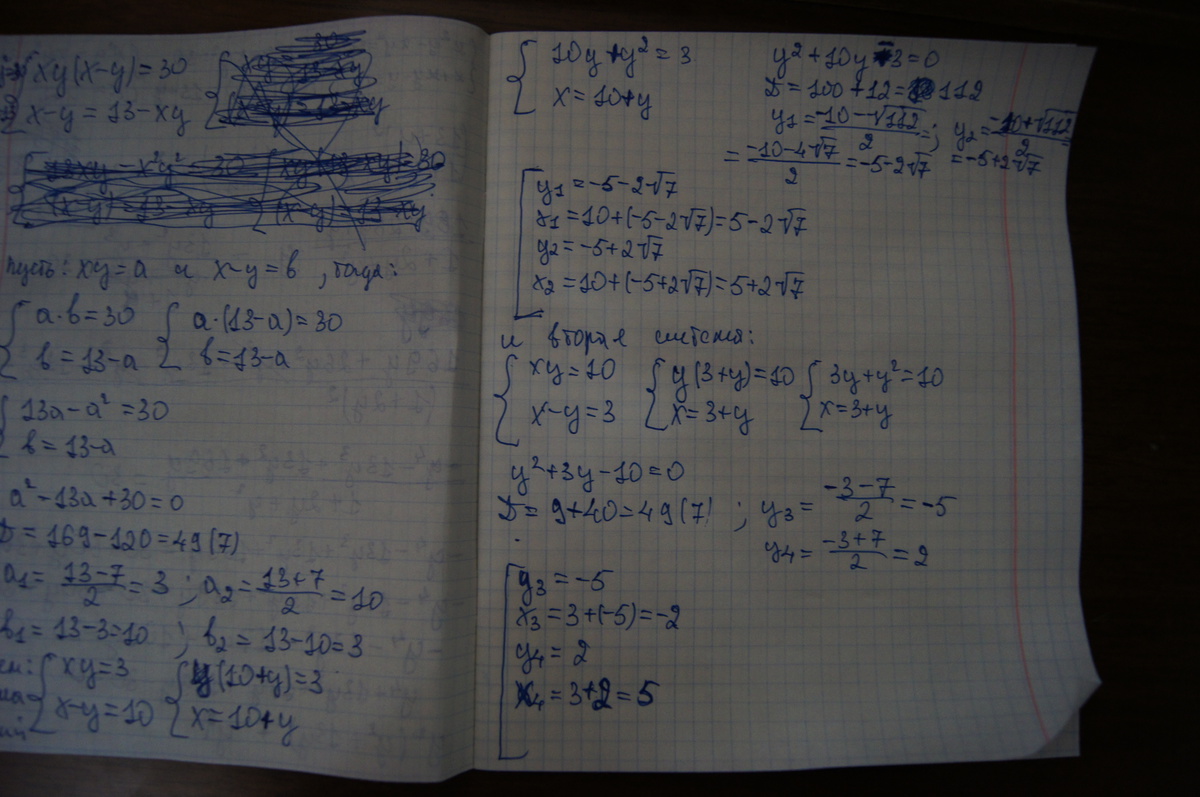 xy(x-y)=30
x-y=13-xy
пусть: xy=a и x-y=b, тогда:
a·b=30 a·(13-a)=30
b=13-a b=13-a
13a-a²=30
b=13-a
a²-13a+30=0
D=169-120=49(7)
a₁=(13-7)/2=3; a₂=(13+7)/2=10
b₁=13-3=10; b₂=13-10=3
xy=3 y(10+y)=3
x-y=10 x=10+y
10y+y²=3 y²+10y-3=0
x=10+y D=100+12=112
y₁=(-10-√112)/2=; y₂=(-10+√112)/2=
=(-10-4√7)/2=-5-2√7 =-5+2√7
y₁=-5-2√7
x₁=10+(-5-2√7)=5-2√7
y₂=-5+2√7
x₂=10+(-5+2√7)=5+2√7
и вторая система:
xy=10 y(3+y)=10 3y+y²=10
x-y=3 x=3+y x=3+y
y²+3y-10=0
D=9+40=49(7); y₃=(-3-7)/2=-5
y₄=(-3+7)/2=2
y₃=-5
x₃=3+(-5)=-2
y₄=2
x₄=3+2=5